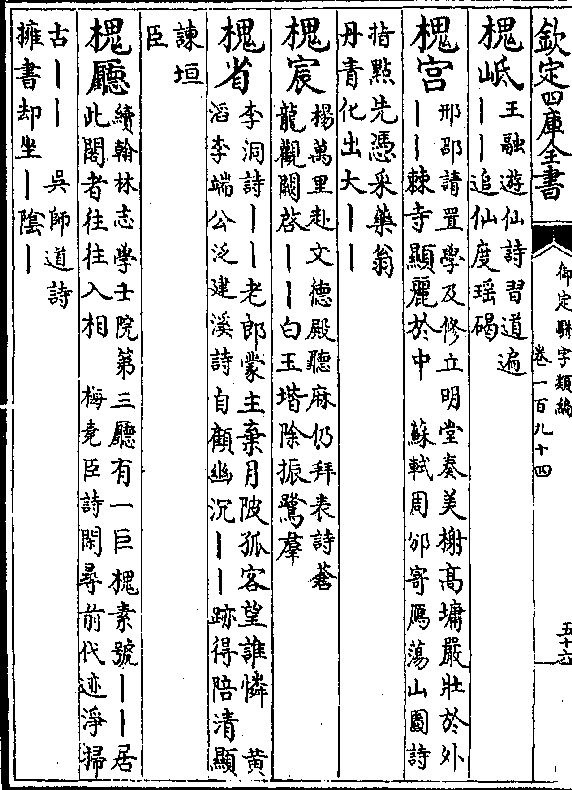 欽定四庫全書
御定駢字類編
卷一百九十四
五十六
槐岻
王融遊仙詩習道遍
丨丨追仙度瑶碣
槐宫
邢邵請置學及修立明堂奏美榭髙墉嚴壯於外
丨丨棘寺顯麗於中 蘇軾周邠寄鴈蕩山圖詩
指點先憑采藥翁
丹青化出大丨丨
槐宸
楊萬里赴文德殿聽麻仍拜表詩蒼
龍觀闕啓丨丨白玉堦除振鷺羣
槐省
李洞詩丨丨老郎蒙主棄月陂孤客望誰憐 黄
滔李端公泛建溪詩自顧幽沉丨丨跡得陪清顯
諫垣
臣
槐廳
續翰林志學士院第三廳有一巨槐素號丨丨居
此閣者往往入相 梅堯臣詩閑尋前代迹淨掃
古丨丨 吳師道詩
擁書却坐丨陰丨